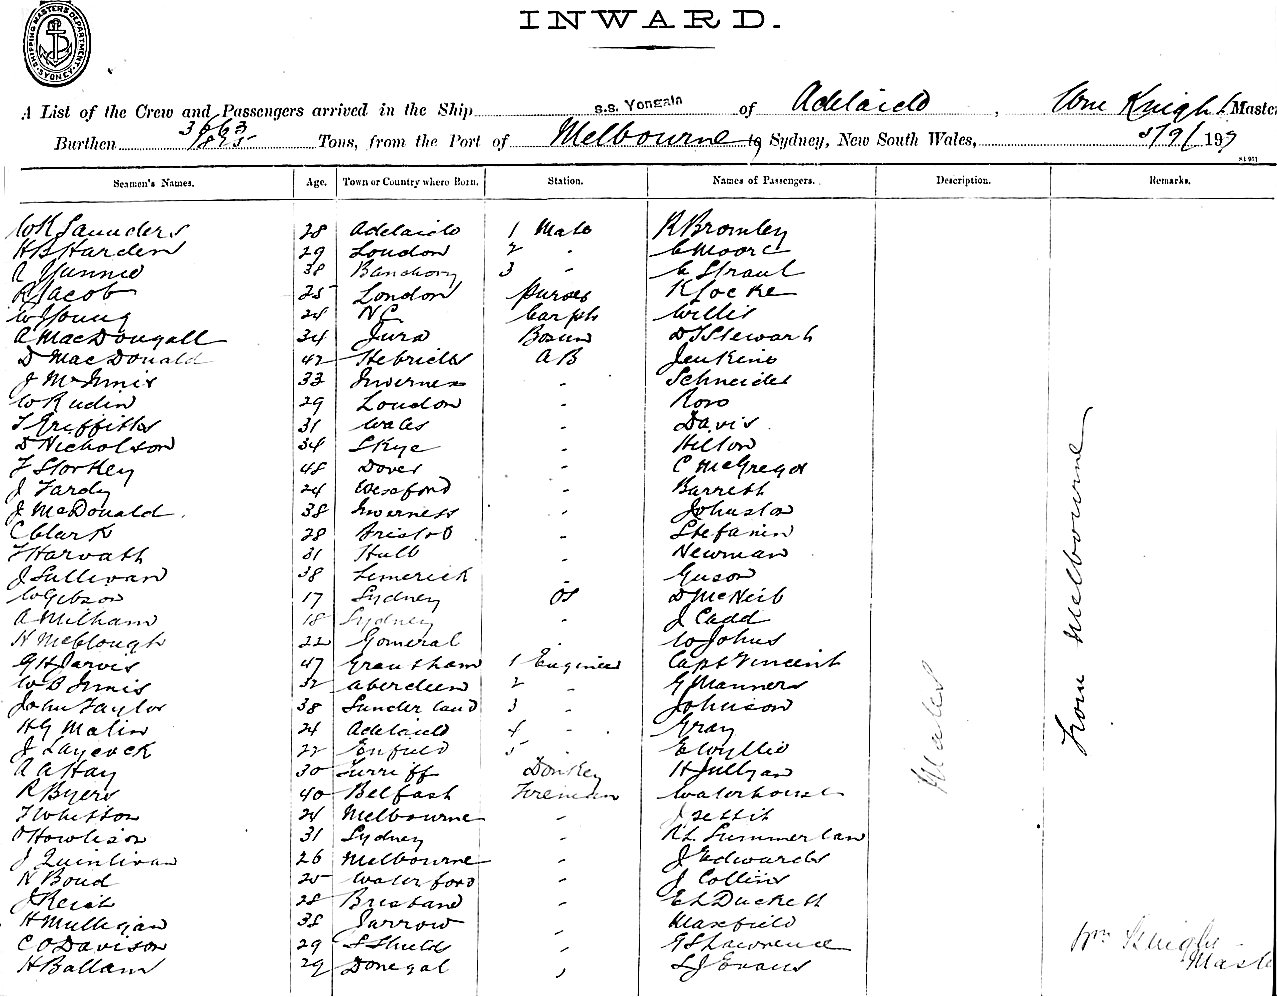 SHIPPING MASTERS DEPARTMENT SYDNEY
INWARD.
A List of the Crew and Passengers arrived in the Ship s.s. Yongala of Adelaide, Wm Knight Master
Burthen 3663/1825 Tons, from the Port of Melbourne to Sydney, New South Wales, 5/9/1907
Seamen's Names. Age. Town or Country where Born. Station. Names of Passengers. Description. Remarks.
W K Saunders 28 Adelaide 1 Mate R Bromley
H B Harden 29 London 2 " C Moore
38 Banchory 3 "
R Jacob 25 London Purser K Locke
W Young 24 NC Carptr Willis
A MacDougall 34 Jura Bosun D S Stewart
D MacDonald 42 Hebrides AB Jenkins
J McInnis 33 Inverness " Schneider
W Rudin 29 London " Ross
T Griffiths 31 Wales " Davis
D Nicholson 34 Skye " Hilton
F Storkey 48 Dover " C McGregor
J Fardy 24 Wexford " Barrett
J McDonald 38 Inverness " Johnston
C Clark 28 Bristol "
F Horvath 31 Hull " Newman
J Sullivan 38 Limerick "
W Gibson 17 Sydney OS D McNeil
A Milham 18 Sydney " J Cadd
N McClough 22 " W Johns
G H Jarvis 47 Grantham 1 Engineer Capt Vincent
W B Innis 32 Aberdeen 2 " G Manners
John Taylor 38 Sunderland 3 " Johnson
H G Malin 24 Adelaide 4 " Gray
J Laycock 22 Enfield 5 " E Wyllie
A A Hay 30 Turriff Donkey H
R Byers 40 Belfast Fireman Waterhouse
F Whitton 24 Melbourne "
O Howlison 31 Sydney
J Quinlivan 26 Melbourne " J Edwards
N Bond 25 Waterford " J Collins
J Reid 28 Brisbane " E L Duckett
H Mulligan 38 Jarrow " Maxfield
C O Davison 29 S Shields " G S Lawrence
H Ballam 29 Donegal " L J Evans
Males
from Melbourne
Wm Knight
Master